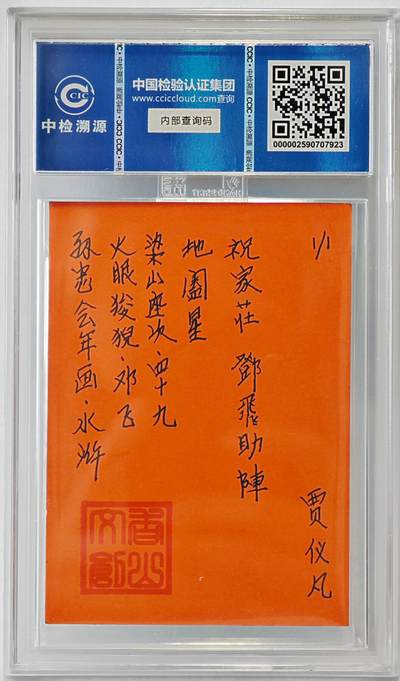 CIC
中检溯源
中国检验认证集团
www.cciccloud.com查询
内部查询码
000002590707923
1/1
祝家莊 鄧飛助陣
地阖星
梁山座次·四十九
火眼狻猊·邓飞
孙忠会年画·水浒
贾仪凡
香山文創